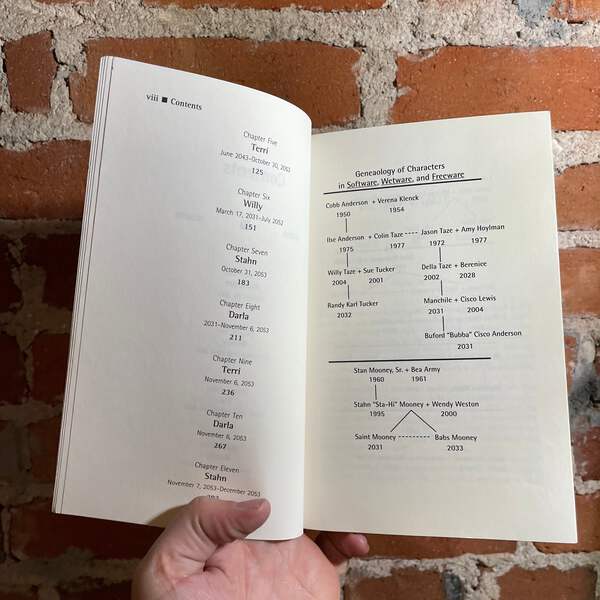 viii ■ Contents
Chapter Five
Terri
June 2043–October 30, 2053
125
Chapter Six
Willy
March 17, 2031–July 2052
151
Chapter Seven
Stahn
October 31, 2053
183
Chapter Eight
Darla
2031–November 6, 2053
211
Chapter Nine
Terri
November 6, 2053
236
Chapter Ten
Darla
November 6, 2053
267
Chapter Eleven
Stahn
November 7, 2053–December 2053
Geneaology of Characters
in Software, Wetware, and Freeware
Cobb Anderson + Verena Klenck
1950 1954
Ilse Anderson + Colin Taze ---- Jason Taze + Amy Hoylman
1975 1977 1972 1977
Willy Taze + Sue Tucker Della Taze + Berenice
2004 2001 2002 2028
Randy Karl Tucker Manchile + Cisco Lewis
2032 2031 2004
Buford "Bubba" Cisco Anderson
2031
Stan Mooney, Sr. + Bea Army
1960 1961
Stahn "Sta-Hi" Mooney + Wendy Weston
1995 2000
Saint Mooney --------- Babs Mooney
2031 2033